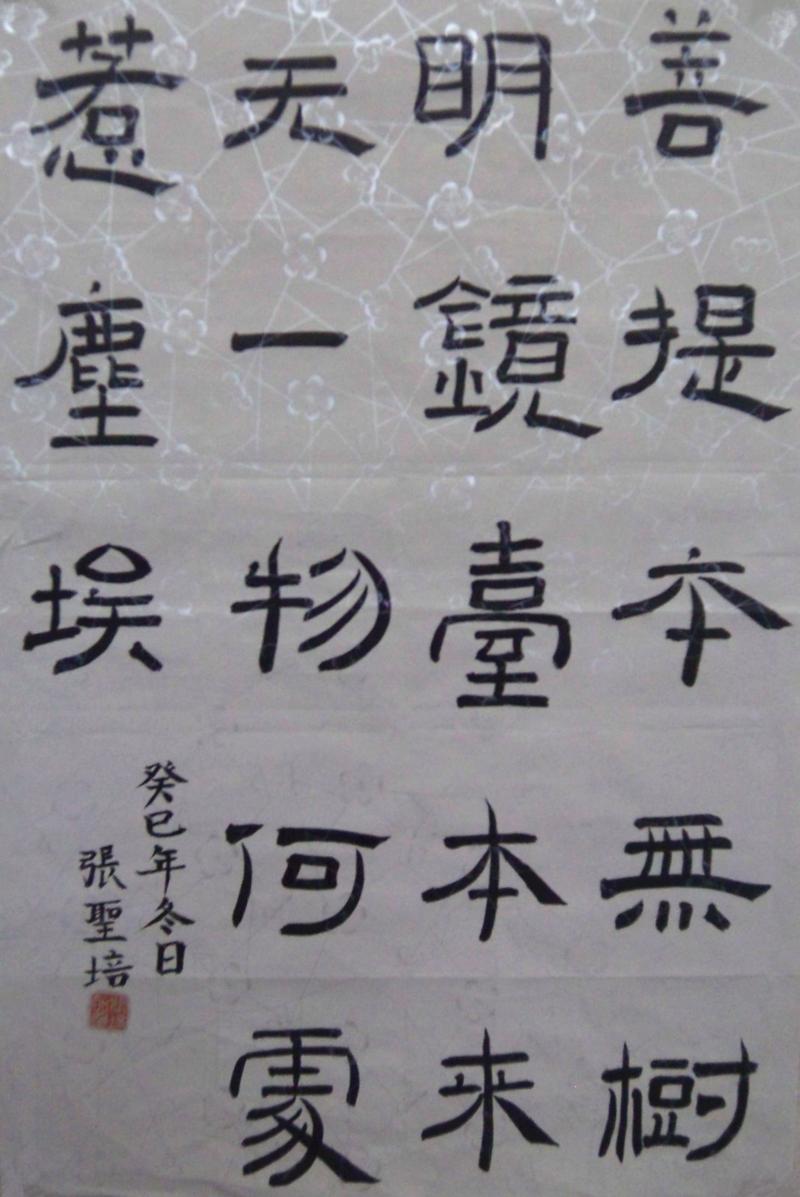 菩提本無樹
明鏡臺本来
无一物何處
惹塵埃
癸巳年冬日
張聖培